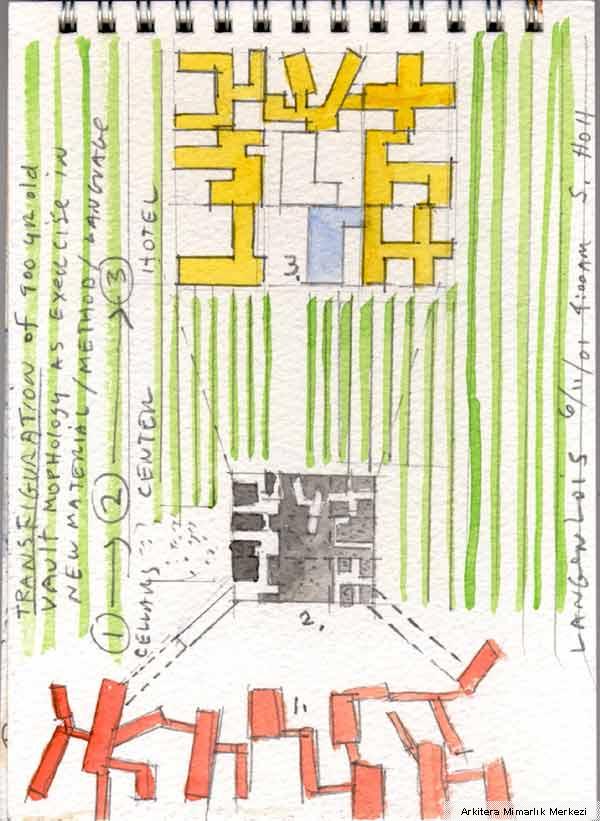 TRANSFIGURATION of 900 yr old
VAULT MOPHOLOGY AS EXERCISE IN
NEW MATERIAL / METHOD / LANGUAGE
1 → 2 → 3
CELLARS CENTER HOTEL
3.
2.
1.
LANGENLOIS 6/11/01 4:00AM S. HOLL
Arkitera Mimarlık Merkezi